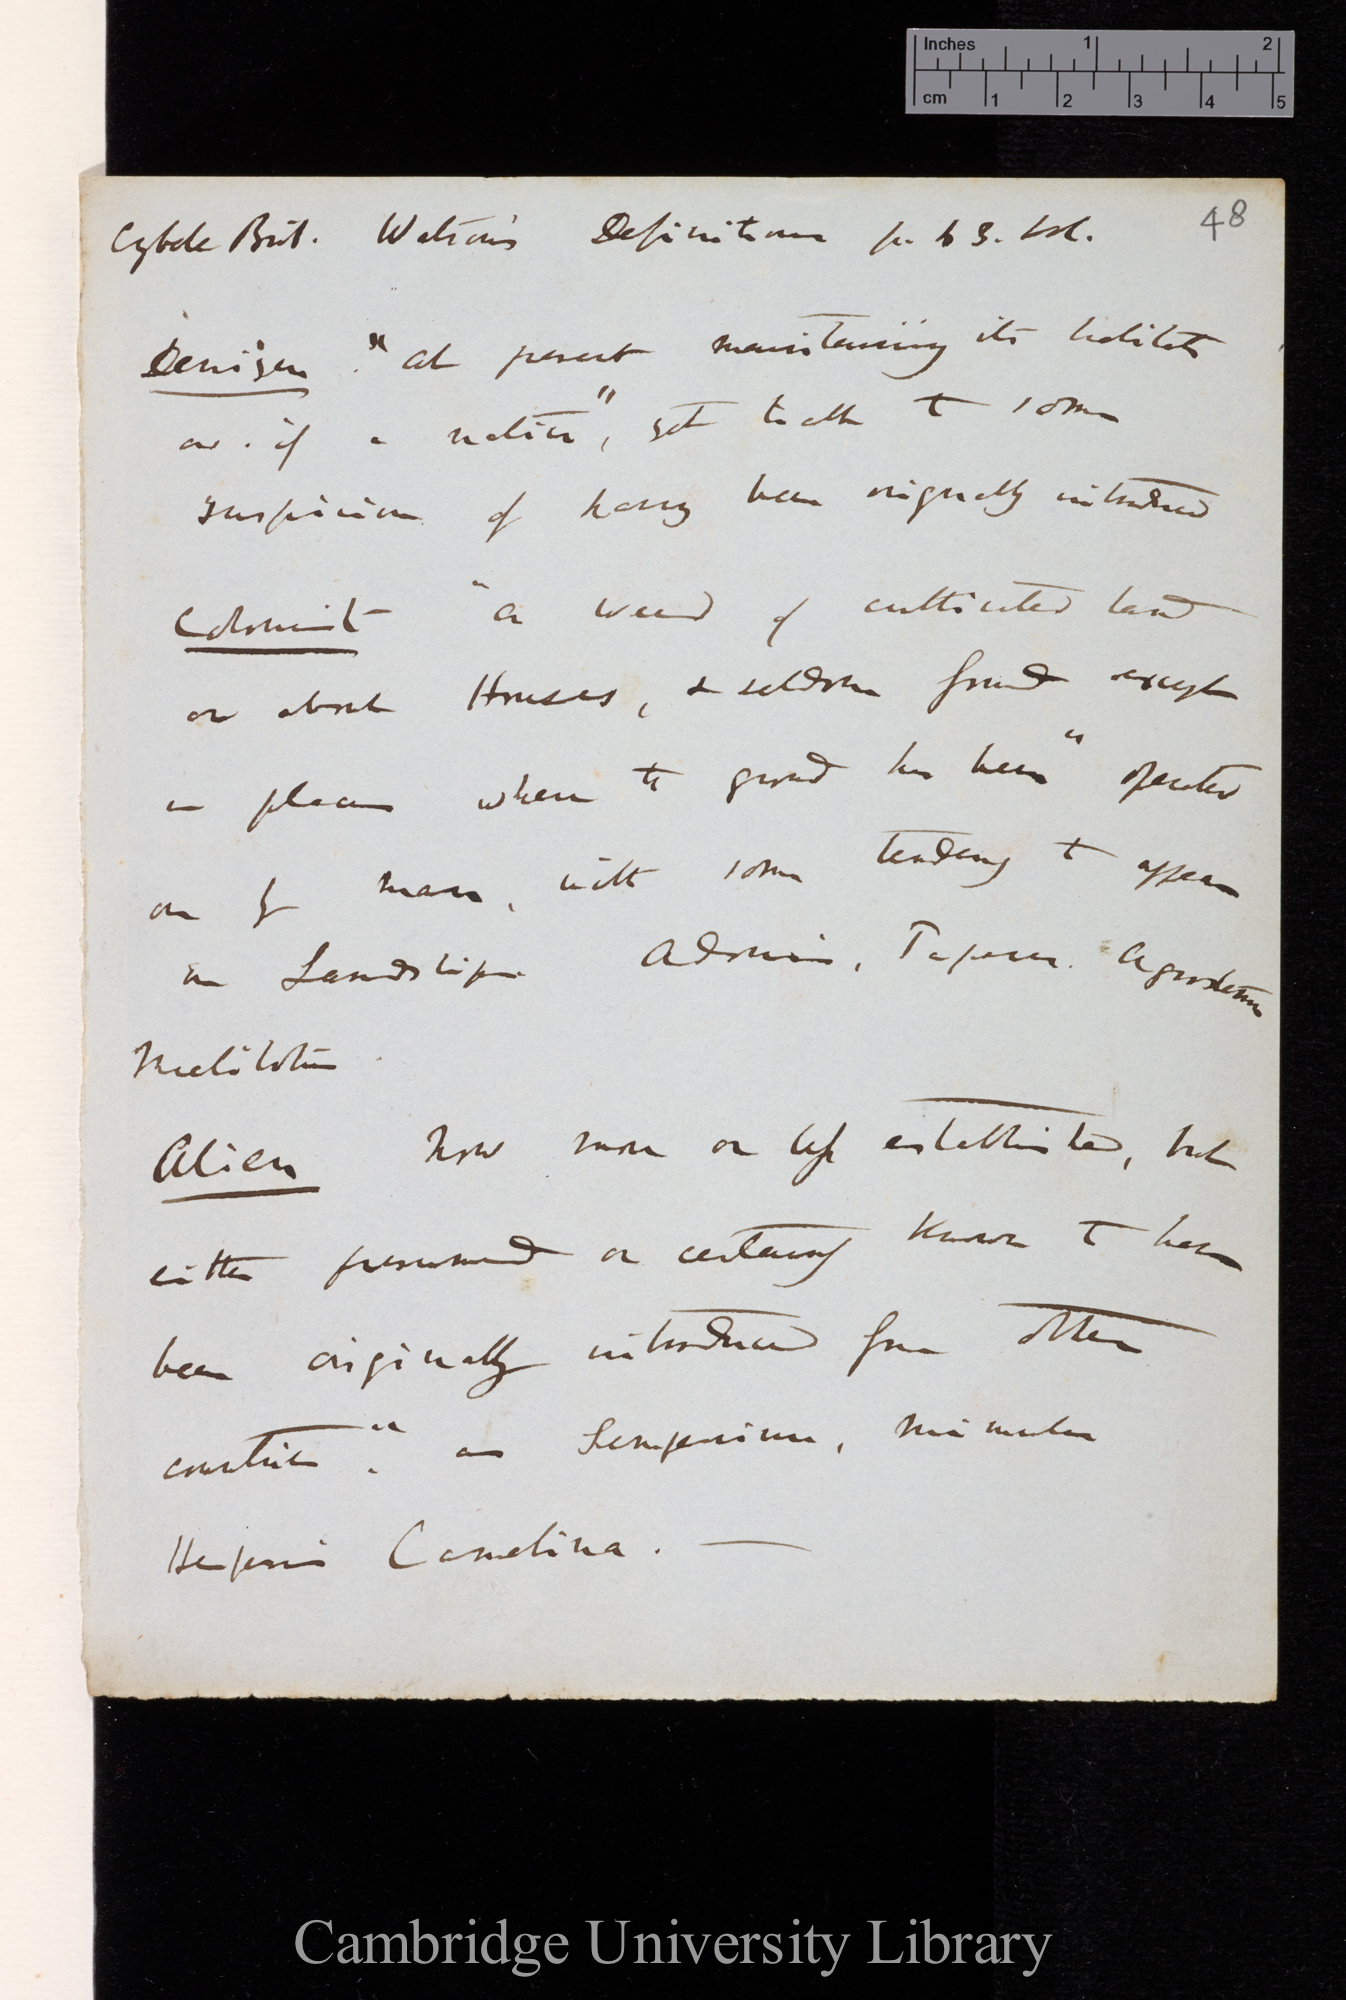 Inches 1 2
cm 1 2 3 4 5
48
Cybele Brit. Watson's Definitions p. 63. Vol.
Denizen. "at present maintaining its habitats
as if a native", yet liable to some
suspicion of having been originally introduced
Colonist "a weed of cultivated land
or about Houses, & seldom found except
in places where the ground has been" operated
on by man, with some tendency to appear
in Landslips. Adonis, Papaver. Agrostemma
Melilotus
Alien Now more or less established, but
either presumed or certainly known to have
been originally introduced from other
countries". as Sempervivum, Mimulus
Hesperis Camelina. —
Cambridge University Library